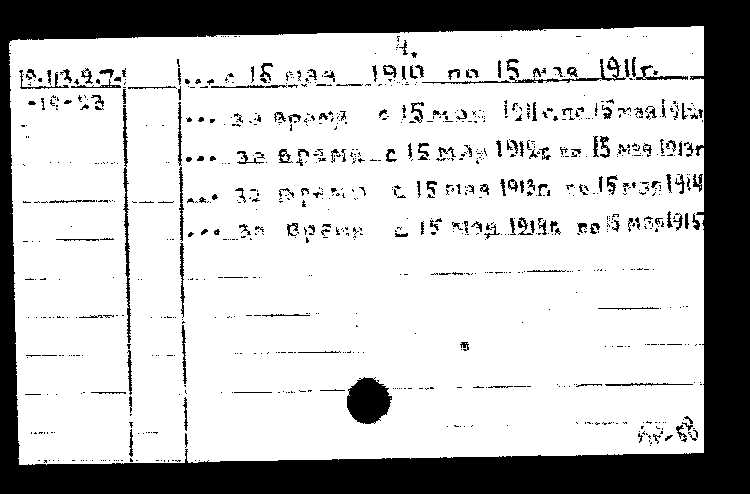 4.
19.113.2.7. ... с 15 мая 1910 по 15 мая 1911г.
-19-23 ... за время с 15 мая 1911г. по 15 мая 1912г
... за время с 15 мая 1912г. по 15 мая 1913г
... за время с 15 мая 1913г. по 15 мая 1914
... за время с 15 мая 1914г. по 15 мая 1915